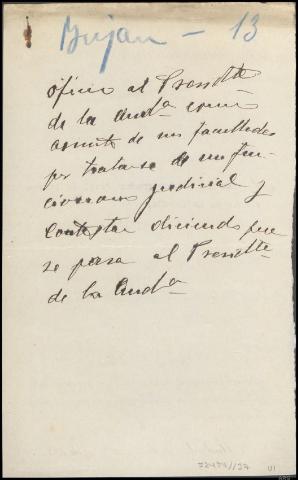 Grijan - 13
Oficio al Presidte
de la Auda como
asunto de sus facultades
por tratarse de un fun-
cionario judicial y
contestar diciendo que
se pasa al Presidte
de la Auda